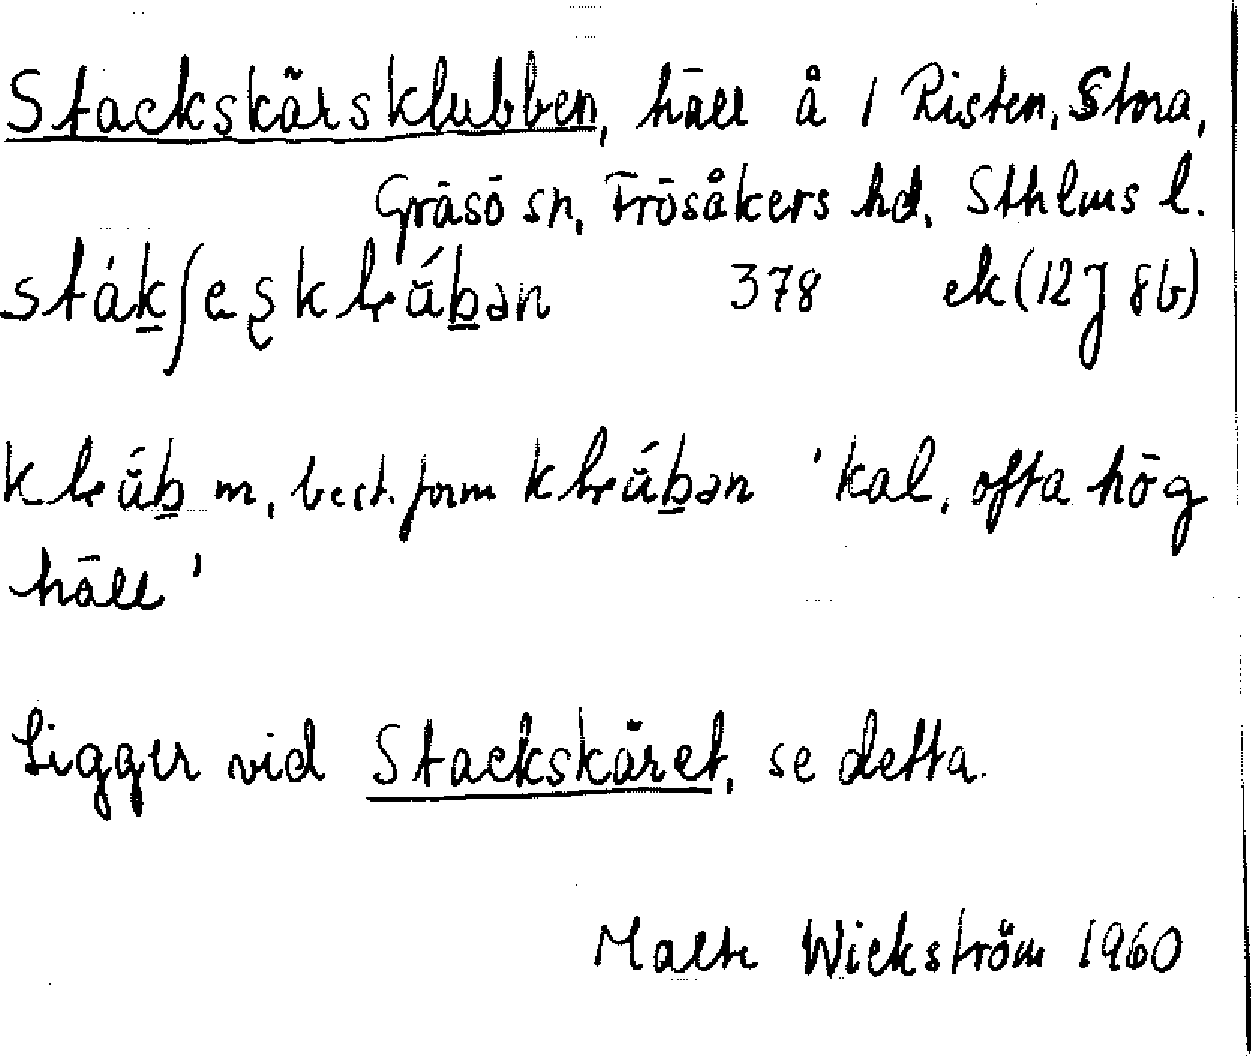 Stackskärsklubben, häll å / Risten, Stora,
Gräsö sn, Frösåkers hd, Sthlms l.
378 ek (12J 8b)
m, best. form 'kal, ofta hög
häll'
Ligger vid Stackskäret, se detta.
Malte Wickström 1960